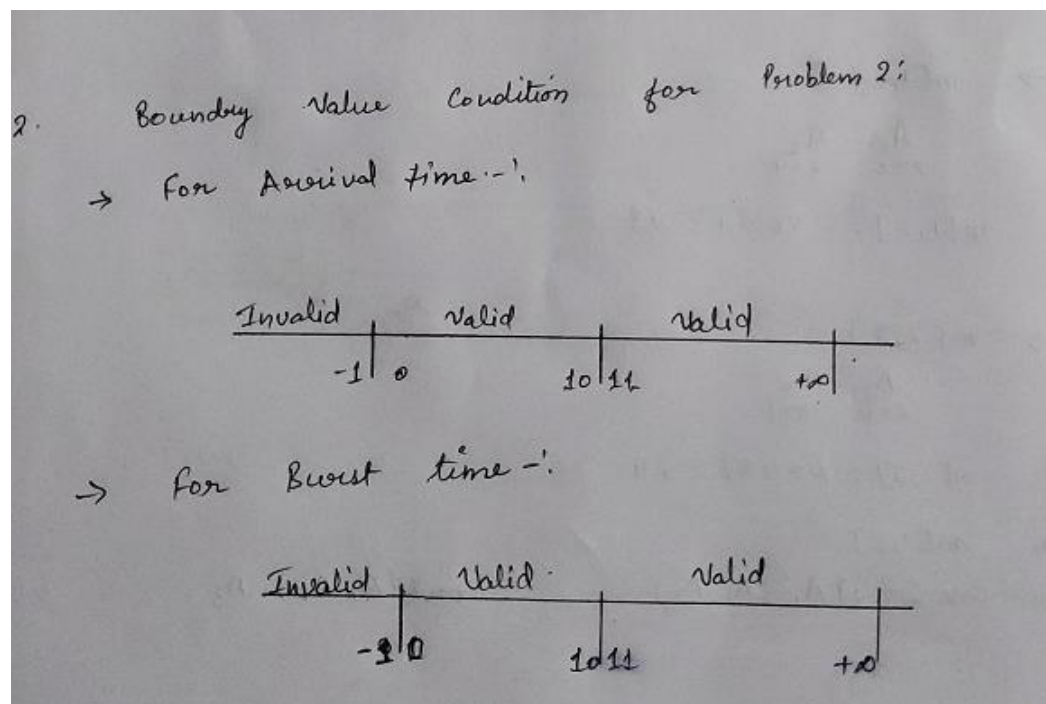 2. Boundry Value Condition for Problem 2:
→ For Arrival time :-
Invalid Valid Valid
-1 0 10 11 +∞
→ For Burst time -:
Invalid Valid Valid
-1 0 10 11 +∞